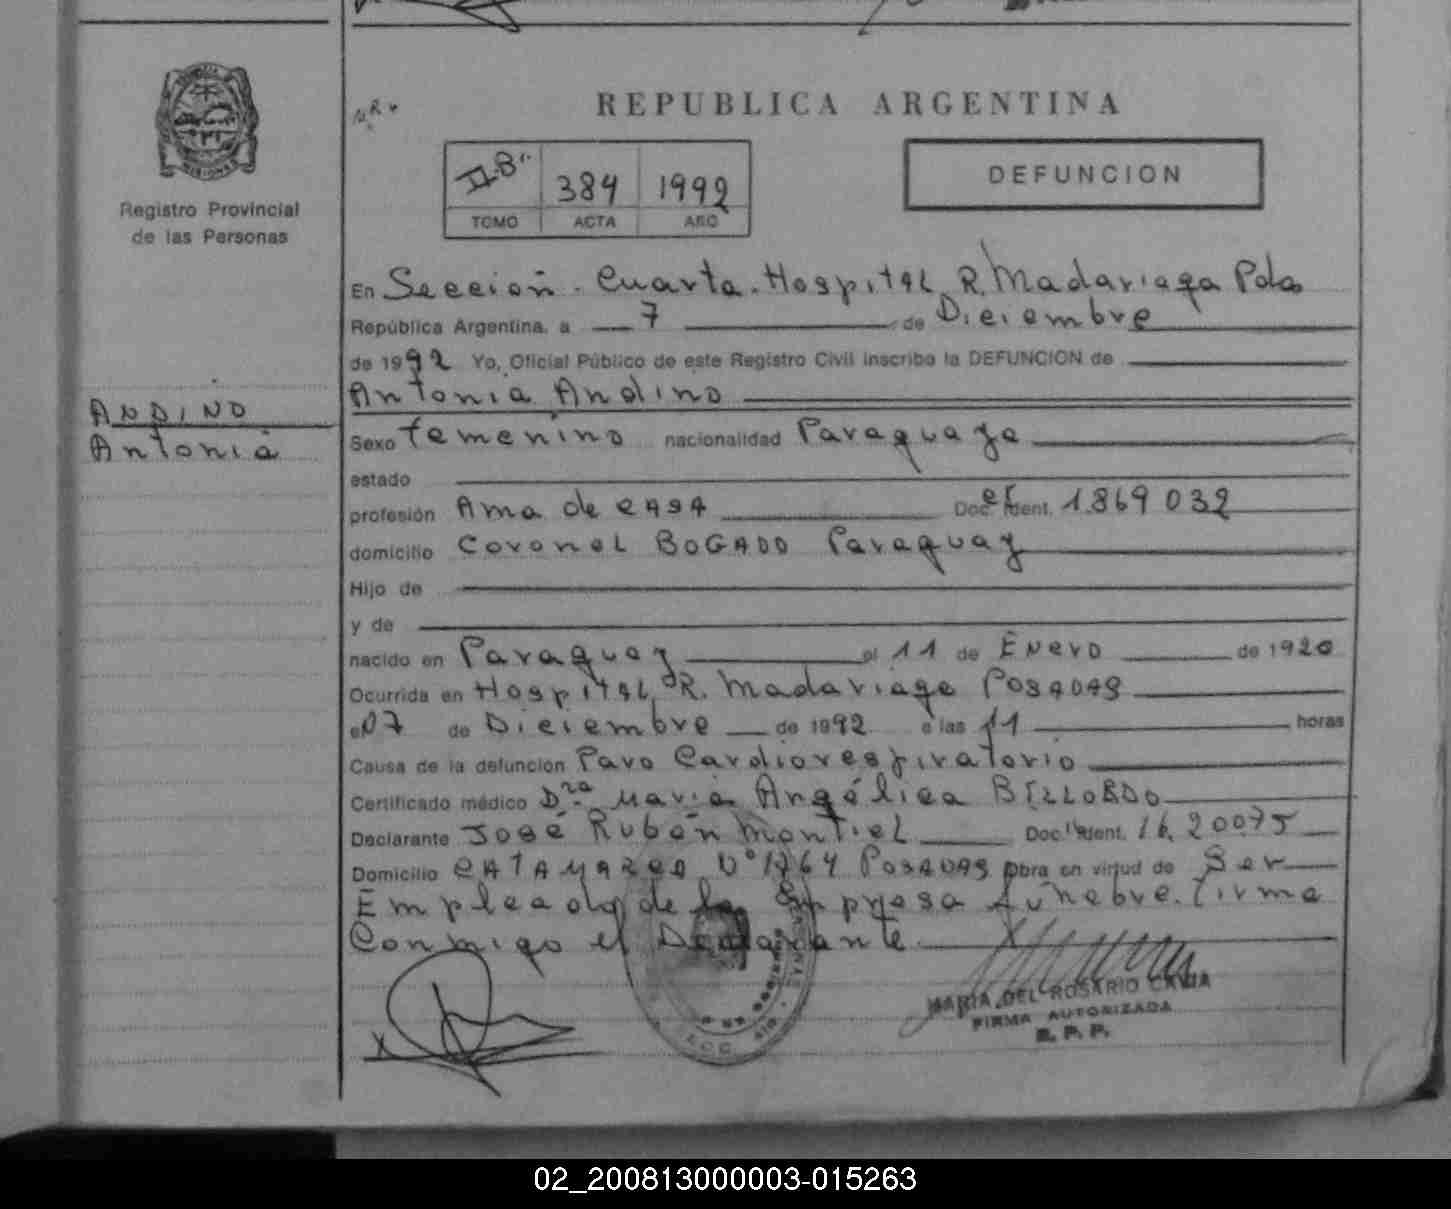 REPUBLICA ARGENTINA
DEFUNCION
II "B" 384 1992
TOMO ACTA AÑO
Registro Provincial
de las Personas
MISIONES
En Sección Cuarta. Hospital R. Madariaga Pdas
República Argentina, a 7 de Diciembre
de 1992 Yo, Oficial Público de este Registro Civil inscribo la DEFUNCION de
Antonia Andino
ANDINO
Antonia
Sexo femenino nacionalidad Paraguaya
estado
profesión Ama de casa Doc. Ident. 1869 032
domicilio Coronel BOGADO Paraguay
Hijo de
y de
nacido en Paraguay el 11 de Enero de 1920
Ocurrida en Hospital R. Madariaga Posadas
el 07 de Diciembre de 1992 a las 11 horas
Causa de la defunción Paro Cardiorespiratorio
Certificado médico Dra María Angélica BILLORDO
Declarante José Rubén Montiel Doc. Ident. 16.20075
Domicilio CATAMARCA N° 1764 Posadas Obra en virtud de Ser
Empleado de la Empresa fúnebre. firma
Conmigo el Declarante.
MARIA DEL ROSARIO
FIRMA AUTORIZADA
R. P. P.
02_200813000003-015263